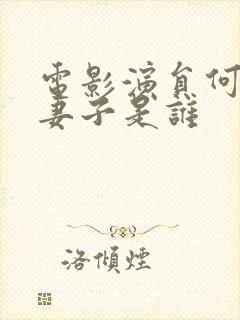 電影演員何
妻子是誰
洛傾煙